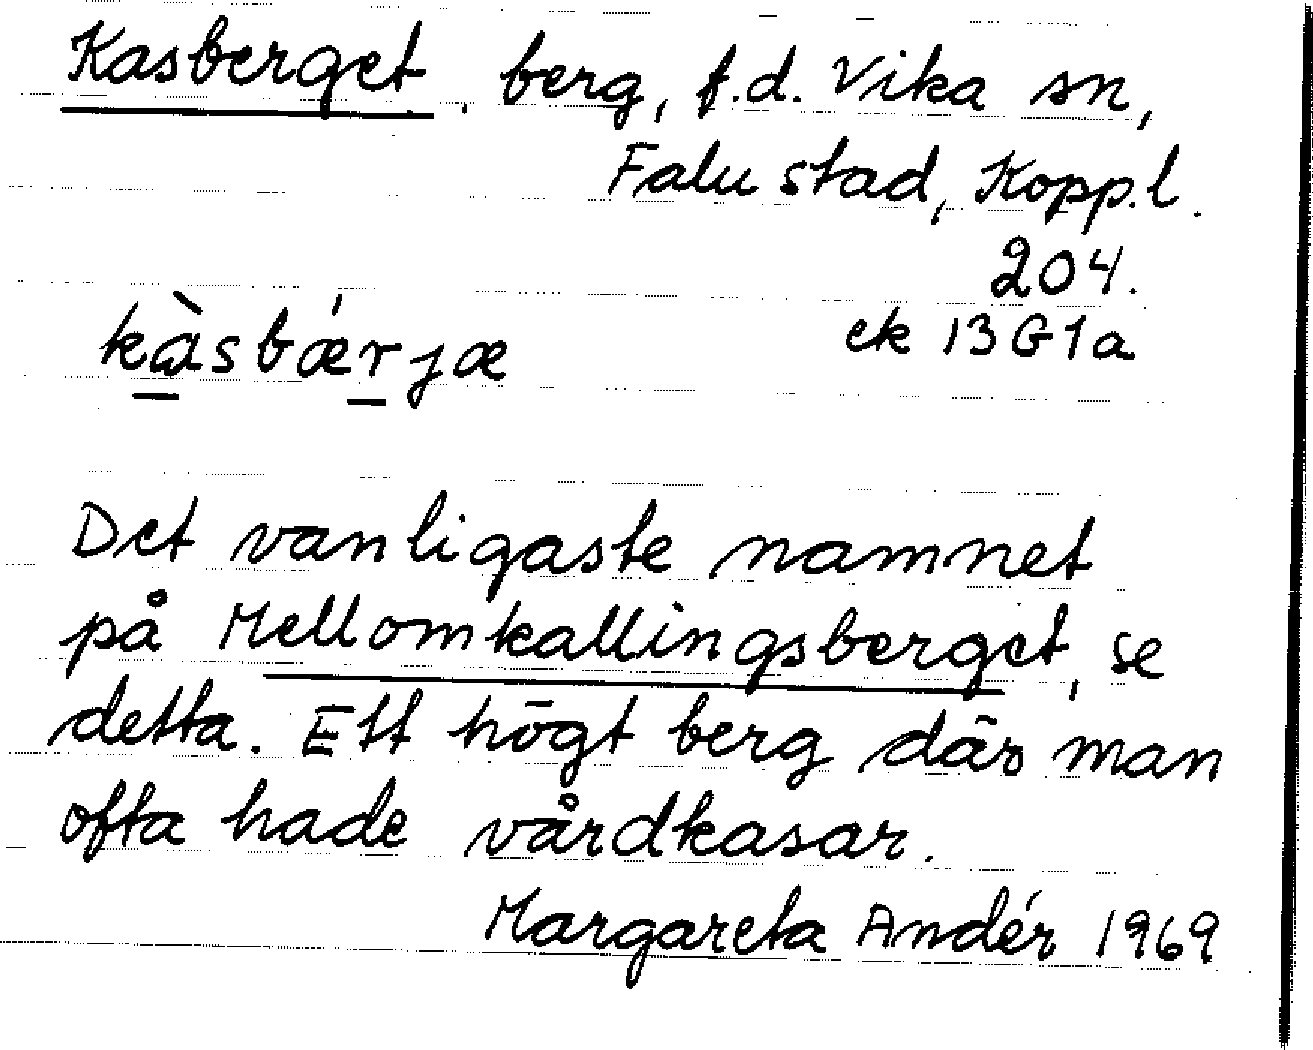 Kasberget. berg, f.d. Vika sn,
Falu stad, Kopp.l.
204.
kàsbǽrjæ ek 13G1a
Det vanligaste namnet
på Mellomkallingsberget, se
detta. Ett högt berg där man
ofta hade vårdkasar.
Margareta Andér 1969